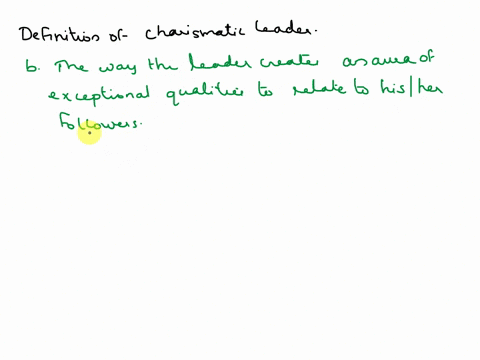 Definition of charismatic leader.
b. The way the leader creates as aura of
exceptional qualities to relate to his/her
followers.